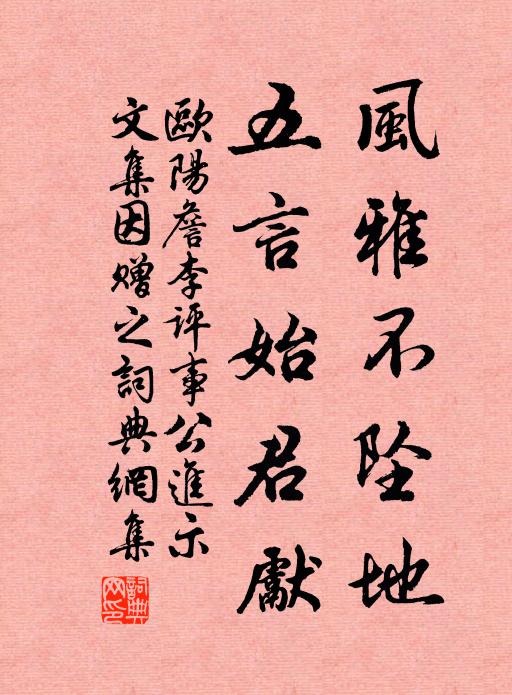 風雅不墜地
五言始君獻
歐陽詹李評事公進示
文集因贈之詞典網集
詞典網印